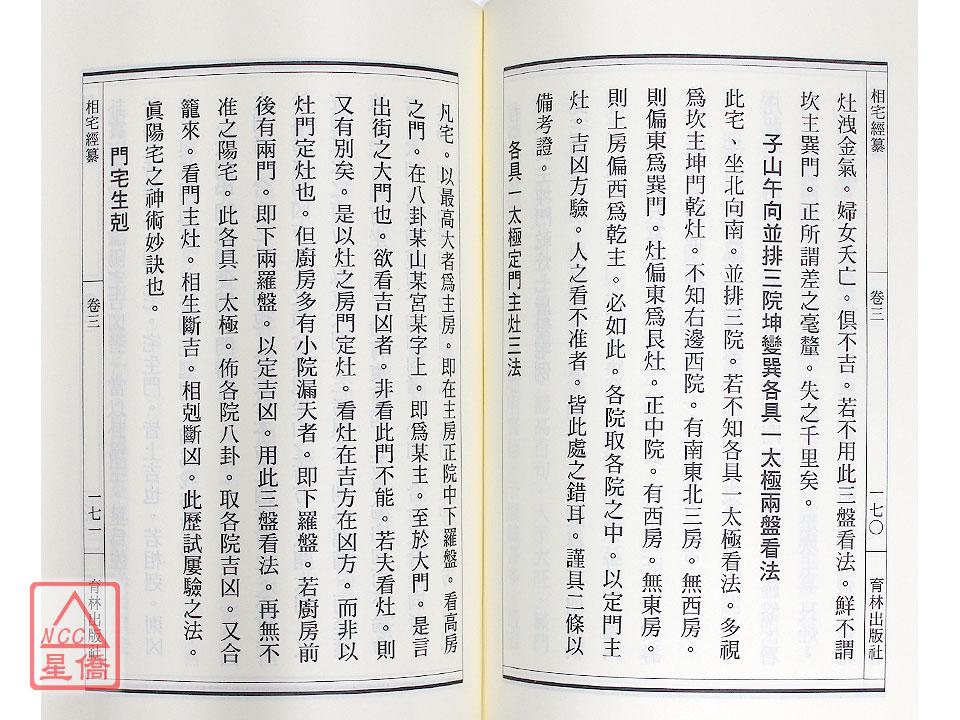 相宅經纂
卷三
一七〇
育林出版社
灶洩金氣。婦女夭亡。俱不吉。若不用此三盤看法。鮮不謂
坎主巽門。正所謂差之毫釐。失之千里矣。
子山午向並排三院坤變巽各具一太極兩盤看法
此宅、坐北向南。並排三院。若不知各具一太極看法。多視
爲坎主坤門乾灶。不知右邊西院。有南東北三房。無西房。
則偏東爲巽門。灶偏東爲艮灶。正中院。有西房。無東房。
則上房偏西爲乾主。必如此。各院取各院之中。以定門主
灶。吉凶方驗。人之看不准者。皆此處之錯耳。謹具二條以
備考證。
各具一太極定門主灶三法
凡宅。以最高大者爲主房。即在主房正院中下羅盤。看高房
之門。在八卦某山某宮某字上。即爲某主。至於大門。是言
出街之大門也。欲看吉凶者。非看此門不能。若夫看灶。則
又有別矣。是以灶之房門定灶。看灶在吉方在凶方。而非以
灶門定灶也。但廚房多有小院漏天者。即下羅盤。若廚房前
後有兩門。即下兩羅盤。以定吉凶。用此三盤看法。再無不
准之陽宅。此各具一太極。佈各院八卦。取各院吉凶。又合
籠來。看門主灶。相生斷吉。相剋斷凶。此歷試屢驗之法。
眞陽宅之神術妙訣也。
門宅生剋
相宅經纂
卷三
一七一
育林出版社
NCC
星僑